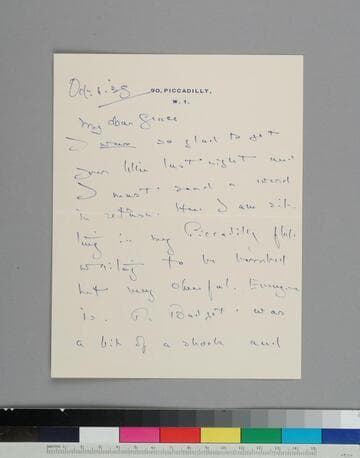 Oct. 1. '39
90, PICCADILLY.
W. 1.
My dear Grace
I was so glad to get
your letter last night and
I must send a word
in return. Here I am sit-
ting in my Piccadilly flat
waiting to be bombed
but very cheerful. Everyone
is. The Budget was
a bit of a shock and